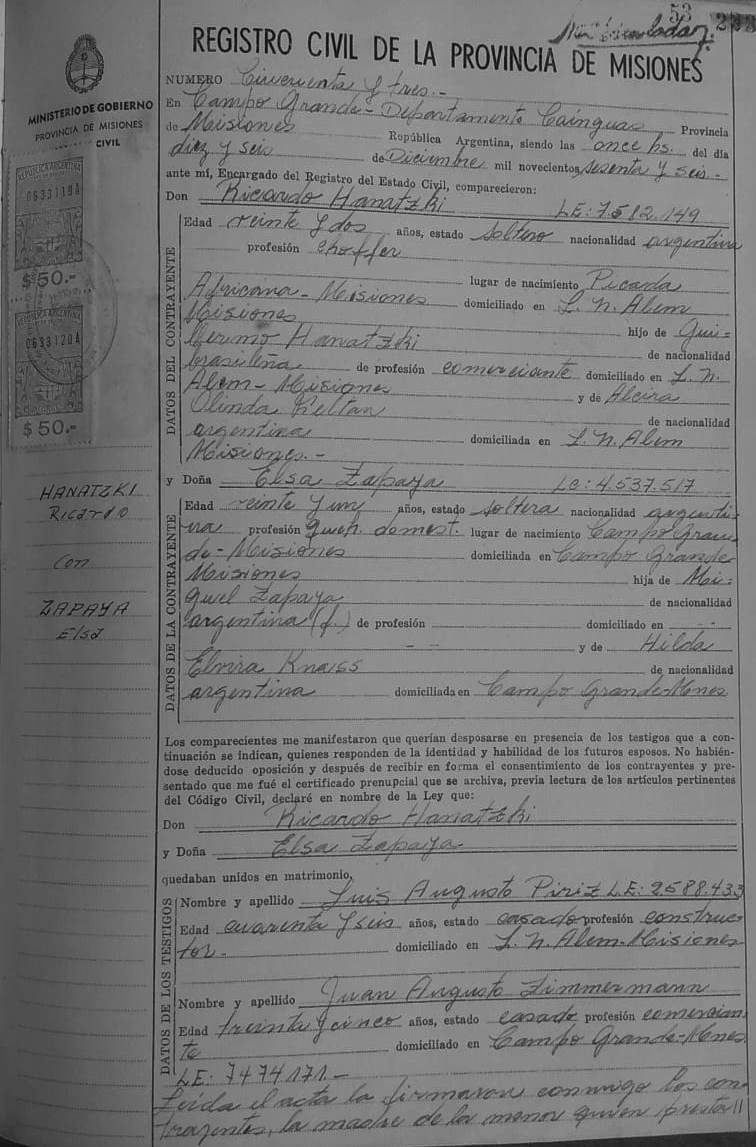 53
233
REGISTRO CIVIL DE LA PROVINCIA DE MISIONES
MINISTERIO DE GOBIERNO
PROVINCIA DE MISIONES
CIVIL
REPUBLICA ARGENTINA
0633119A
$50.-
REPUBLICA ARGENTINA
0633120A
$50.-
HANATZKI
Ricardo
Con
ZAPAYA
Elsa
NUMERO Cincuenta y tres.-
En Campo Grande - Departamento Cainguas Provincia
de Misiones República Argentina, siendo las once hs. del día
diez y seis de Diciembre mil novecientos sesenta y seis.-
ante mí, Encargado del Registro del Estado Civil, comparecieron:
Don Ricardo Hanatzki LE: 7.582.149
DATOS DEL CONTRAYENTE
Edad veinte y dos años, estado soltero nacionalidad argentina
profesión choffer
lugar de nacimiento Picada
Africana - Misiones domiciliado en L. N. Alem
Misiones hijo de Gui=
llermo Hanatzki de nacionalidad
brasileña de profesión comerciante domiciliado en L. N.
Alem - Misiones y de Alcira
Olinda de nacionalidad
argentina domiciliada en L. N. Alem
Misiones.-
y Doña Elsa Zapaya LC: 4.537.517
DATOS DE LA CONTRAYENTE
Edad veinte y un años, estado soltera nacionalidad argenti=
na profesión queh. domest. lugar de nacimiento Campo Gran=
de - Misiones domiciliada en Campo Grande
Misiones hija de Mi=
guel Zapaya de nacionalidad
argentina (f.) de profesión domiciliado en - -
- - y de Hilda
Elvira Knass de nacionalidad
argentina domiciliada en Campo Grande-Mnes
Los comparecientes me manifestaron que querían desposarse en presencia de los testigos que a con-
tinuación se indican, quienes responden de la identidad y habilidad de los futuros esposos. No habién-
dose deducido oposición y después de recibir en forma el consentimiento de los contrayentes y pre-
sentado que me fué el certificado prenupcial que se archiva, previa lectura de los artículos pertinentes
del Código Civil, declaré en nombre de la Ley que:
Don Ricardo Hanatzki
y Doña Elsa Zapaya
quedaban unidos en matrimonio,
DATOS DE LOS TESTIGOS
Nombre y apellido Luis Augusto Piriz LE: 2588.433
Edad cuarenta y seis años, estado casado profesión construc=
tor.- domiciliado en L. N. Alem-Misiones
Nombre y apellido Juan Augusto Zimmermann
Edad treinta y cinco años, estado casado profesión comercian=
te domiciliado en Campo Grande-Mnes
LE: 7474171.-
Leida el acta la firmaron conmigo los con
trayentes, la madre de la menor quien presta //